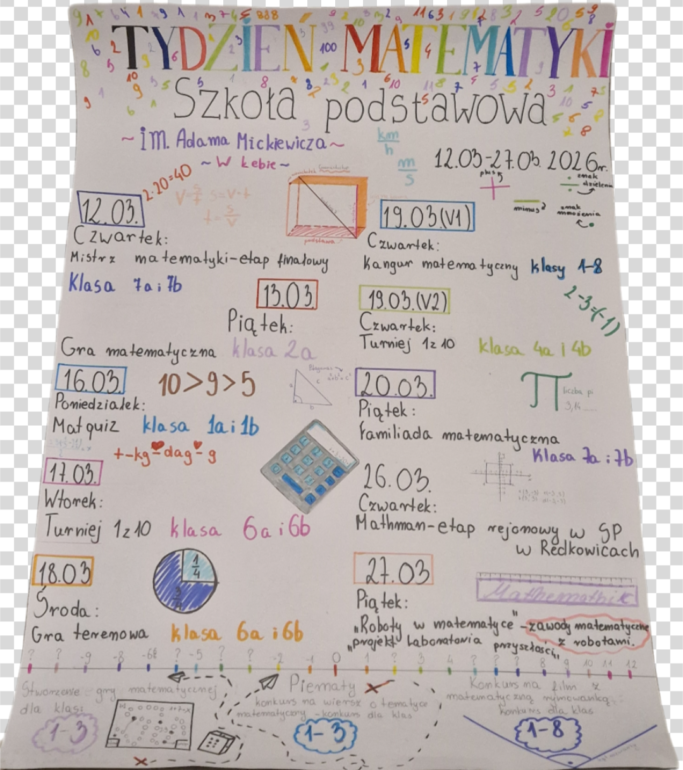 TYDZIEŃ MATEMATYKI
Szkoła podstawowa
~ IM. Adama Mickiewicza ~
~ W Łebie ~
km/h
m/s
12.03-27.03. 2026r.
2·20=40
plus
minus
znak dzielenia
znak mnożenia
12.03.
Czwartek:
Mistrz matematyki-etap finałowy
Klasa 7a i 7b
13.03
Piątek:
Gra matematyczna klasa 2a
16.03.
10>9>5
Poniedziałek:
Mat quiz klasa 1a i 1b
t-kg-dag-g
17.03.
Wtorek:
Turniej 1z10 klasa 6a i 6b
18.03
Środa:
Gra terenowa klasa 6a i 6b
1/4
19.03(V1)
Czwartek:
Kangur matematyczny klasy 1-8
2-3=(-1)
19.03.(V2)
Czwartek:
Turniej 1z10 klasa 4a i 4b
20.03.
Piątek:
π
Familiada matematyczna
Klasa 7a i 7b
26.03.
Czwartek:
Mathman-etap rejonowy w SP
w Redkowicach
27.03
Piątek:
Mathemathik
"Roboty w matematyce"-zawody matematyczne
z robotami.
"projekt Laboratoria przyszłości"
Stworzenie gry matematycznej
dla klas:
1-3
Piematy
konkurs na wiersz o tematyce
matematycznej - konkurs dla klas
1-3
Konkurs na film z
matematyczną rymowanką:
konkurs dla klas
1-8